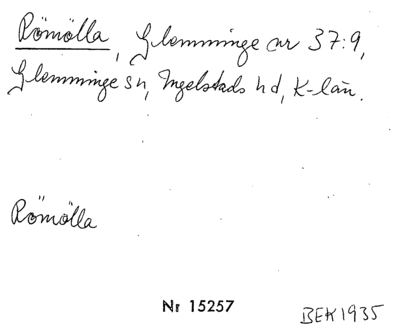 Römölla, Glemminge nr 37:9,
Glemminge sn, Ingelstads hd, K-län.
Römölla
Nr 15257
BEK 1935